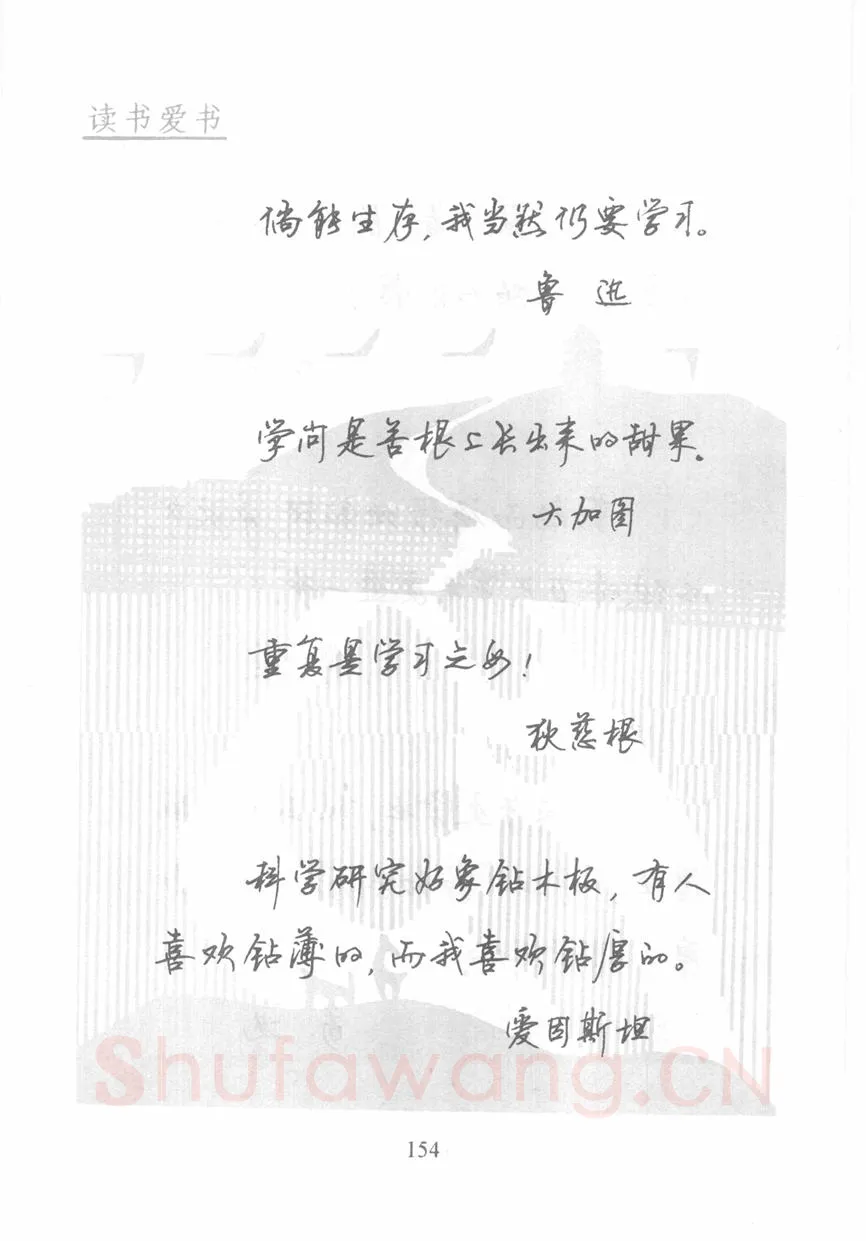 读书爱书
倘能生存，我当然仍要学习。
鲁迅
学问是苦根上长出来的甜果。
大加图
重复是学习之母！
狄慈根
科学研究好象钻木板，有人
喜欢钻薄的，而我喜欢钻厚的。
爱因斯坦
Shufawang.CN
154